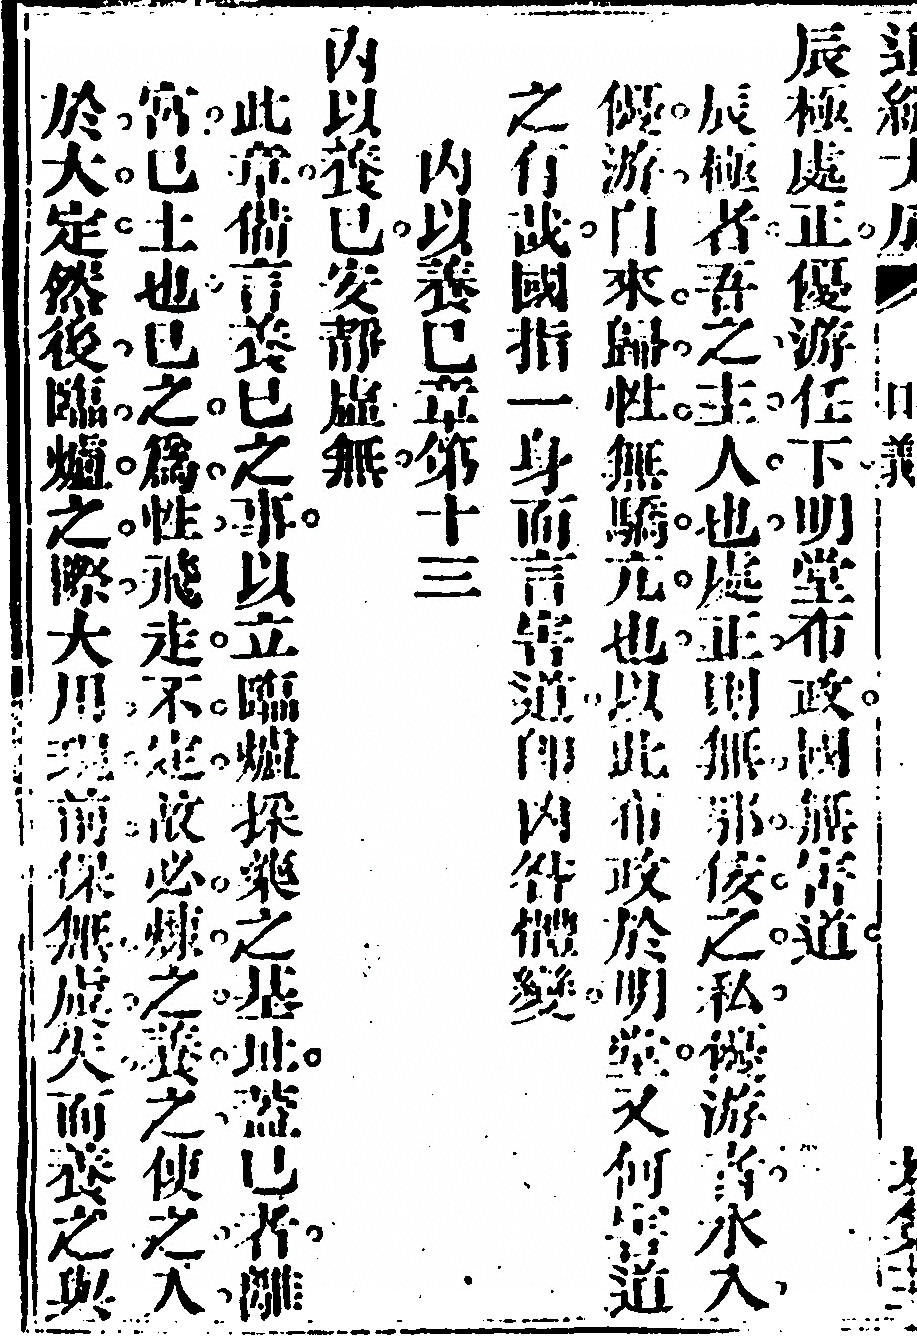 辰極處正優游任下明堂布政國無害道
辰極者吾之主人也處正則無邪佞之私優游者水入
優游自來歸性無驕亢也以此布政於明堂又何害道
之有哉國指一身而言害道即凶咎體變
内以養己章第十三
内以養己安靜虛無
此章備言養己之事以立臨爐採藥之基址葢己者離
宮己土也己之為性飛走不定故必煉之養之使之入
於大定然後臨爐之際大用現前保無虞失而養之與